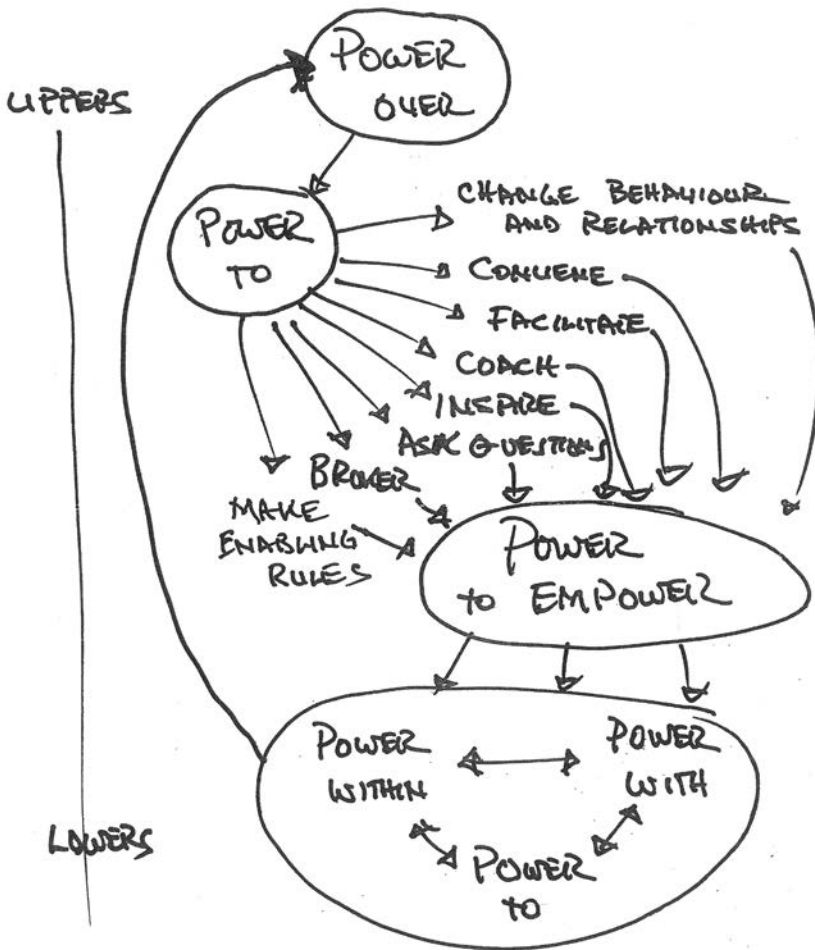 POWER
OVER
UPPERS
POWER
TO
CHANGE BEHAVIOUR
AND RELATIONSHIPS
CONVENE
FACILITATE
COACH
INSPIRE
ASK QUESTIONS
BROKER
MAKE
ENABLING
RULES
POWER
TO EMPOWER
POWER
WITHIN
POWER
WITH
POWER
TO
LOWERS